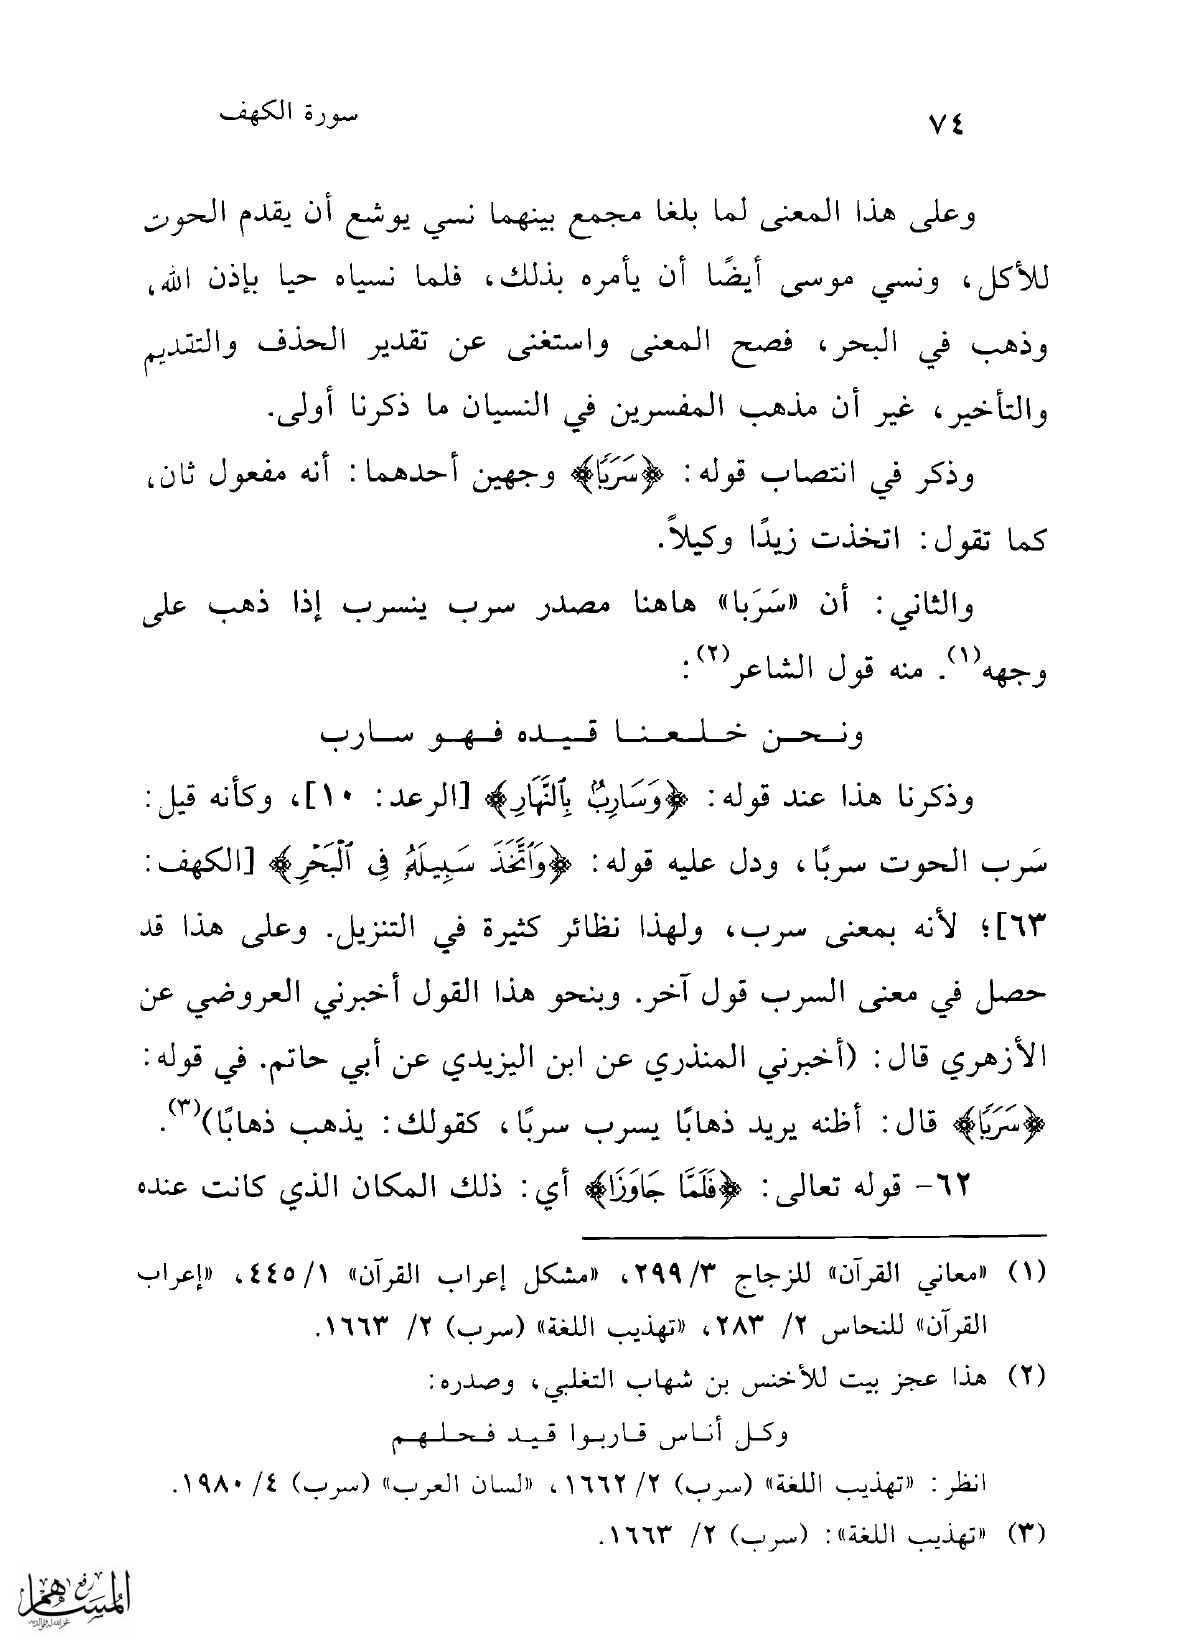 ٧٤ سورة الكهف
وعلى هذا المعنى لما بلغا مجمع بينهما نسي يوشع أن يقدم الحوت
للأكل، ونسي موسى أيضًا أن يأمره بذلك، فلما نسياه حيا بإذن الله،
وذهب في البحر، فصح المعنى واستغنى عن تقدير الحذف والتقديم
والتأخير، غير أن مذهب المفسرين في النسيان ما ذكرنا أولى.
وذكر في انتصاب قوله: ﴿سَرَبًا﴾ وجهين أحدهما: أنه مفعول ثان،
كما تقول: اتخذت زيدًا وكيلاً.
والثاني: أن «سَرَبا» هاهنا مصدر سرب ينسرب إذا ذهب على
وجهه(١). منه قول الشاعر(٢):
ونـحـن خـلـعـنـا قـيـده فـهـو سـارب
وذكرنا هذا عند قوله: ﴿وَسَارِبٌ بِٱلنَّهَارِ﴾ [الرعد: ١٠]، وكأنه قيل:
سَرب الحوت سربًا، ودل عليه قوله: ﴿وَٱتَّخَذَ سَبِيلَهُۥ فِى ٱلْبَحْرِ﴾ [الكهف:
٦٣]؛ لأنه بمعنى سرب، ولهذا نظائر كثيرة في التنزيل. وعلى هذا قد
حصل في معنى السرب قول آخر. وبنحو هذا القول أخبرني العروضي عن
الأزهري قال: (أخبرني المنذري عن ابن اليزيدي عن أبي حاتم. في قوله:
﴿سَرَبًا﴾ قال: أظنه يريد ذهابًا يسرب سربًا، كقولك: يذهب ذهابًا)(٣).
٦٢- قوله تعالى: ﴿فَلَمَّا جَاوَزَا﴾ أي: ذلك المكان الذي كانت عنده
(١) «معاني القرآن» للزجاج ٣/ ٢٩٩، «مشكل إعراب القرآن» ١/ ٤٤٥، «إعراب
القرآن» للنحاس ٢/ ٢٨٣، «تهذيب اللغة» (سرب) ٢/ ١٦٦٣.
(٢) هذا عجز بيت للأخنس بن شهاب التغلبي، وصدره:
وكـل أنـاس قـاربـوا قـيـد فـحـلـهـم
انظر: «تهذيب اللغة» (سرب) ٢/ ١٦٦٢، «لسان العرب» (سرب) ٤/ ١٩٨٠.
(٣) «تهذيب اللغة»: (سرب) ٢/ ١٦٦٣.